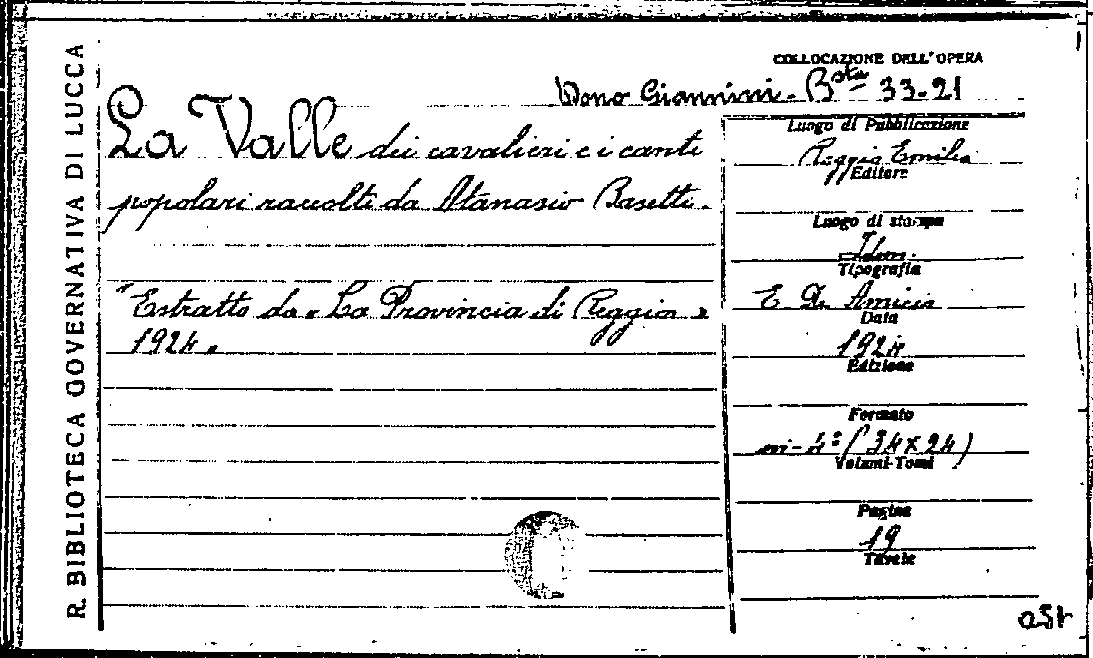 R. BIBLIOTECA GOVERNATIVA DI LUCCA
COLLOCAZIONE DELL'OPERA
Dono Giannini - Bsta 33-21
La Valle dei cavalieri e i canti
popolari raccolti da Atanasio Basetti.
Estratto da "La Provincia di Reggio"
1924.
Luogo di Pubblicazione
Reggio Emilia
Editore
Luogo di stampa
Idem.
Tipografia
E. De Amicis
Data
1924
Edizione
Formato
in-4º (34x24)
Volumi-Tomi
Pagine
19
Tavole